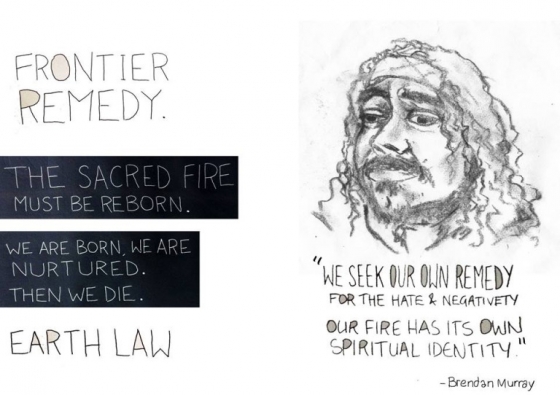 FRONTIER
REMEDY.
THE SACRED FIRE
MUST BE REBORN.
WE ARE BORN, WE ARE
NURTURED.
THEN WE DIE.
EARTH LAW
"WE SEEK OUR OWN REMEDY
FOR THE HATE & NEGATIVETY
OUR FIRE HAS ITS OWN
SPIRITUAL IDENTITY."
- Brendan Murray